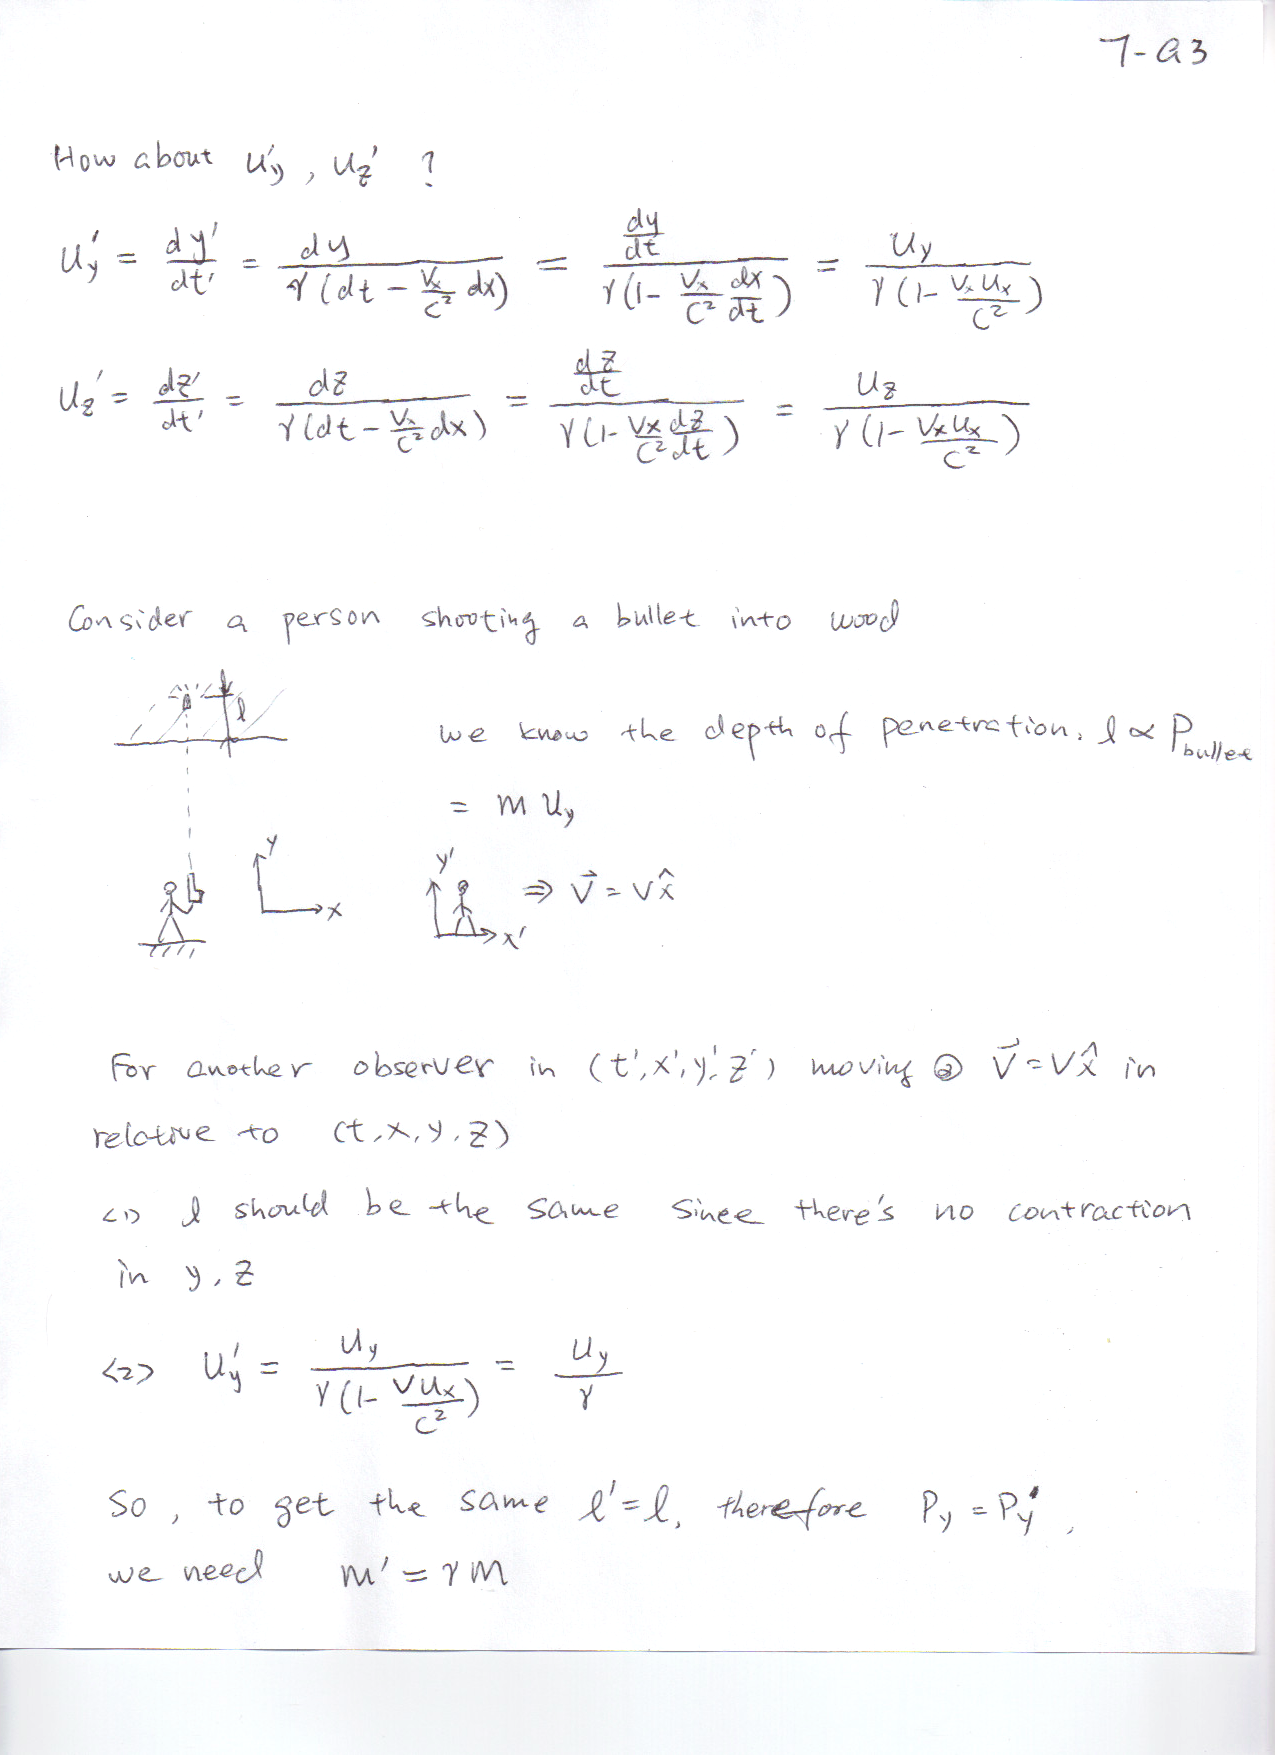 7-a3
How about u'y, uz' ?
uy' = dy'/dt' = dy / γ(dt - Vx/c² dx) = dy/dt / γ(1- Vx/c² dx/dt) = uy / γ(1- Vx ux/c²)
uz' = dz'/dt' = dz / γ(dt - Vx/c² dx) = dz/dt / γ(1- Vx/c² dz/dt) = uz / γ(1- Vx ux/c²)
Consider a person shooting a bullet into wood
l
we know the depth of penetration, l ∝ Pbullet
= m uy
y
x
y'
x'
⇒ v⃗ = v x̂
For another observer in (t',x',y',z') moving @ v⃗ = v x̂ in
relative to (t,x,y,z)
<1> l should be the same since there's no contraction
in y, z
<2> uy' = uy / γ(1- v ux/c²) = uy/γ
So, to get the same l'=l, therefore Py = Py',
we need m' = γm